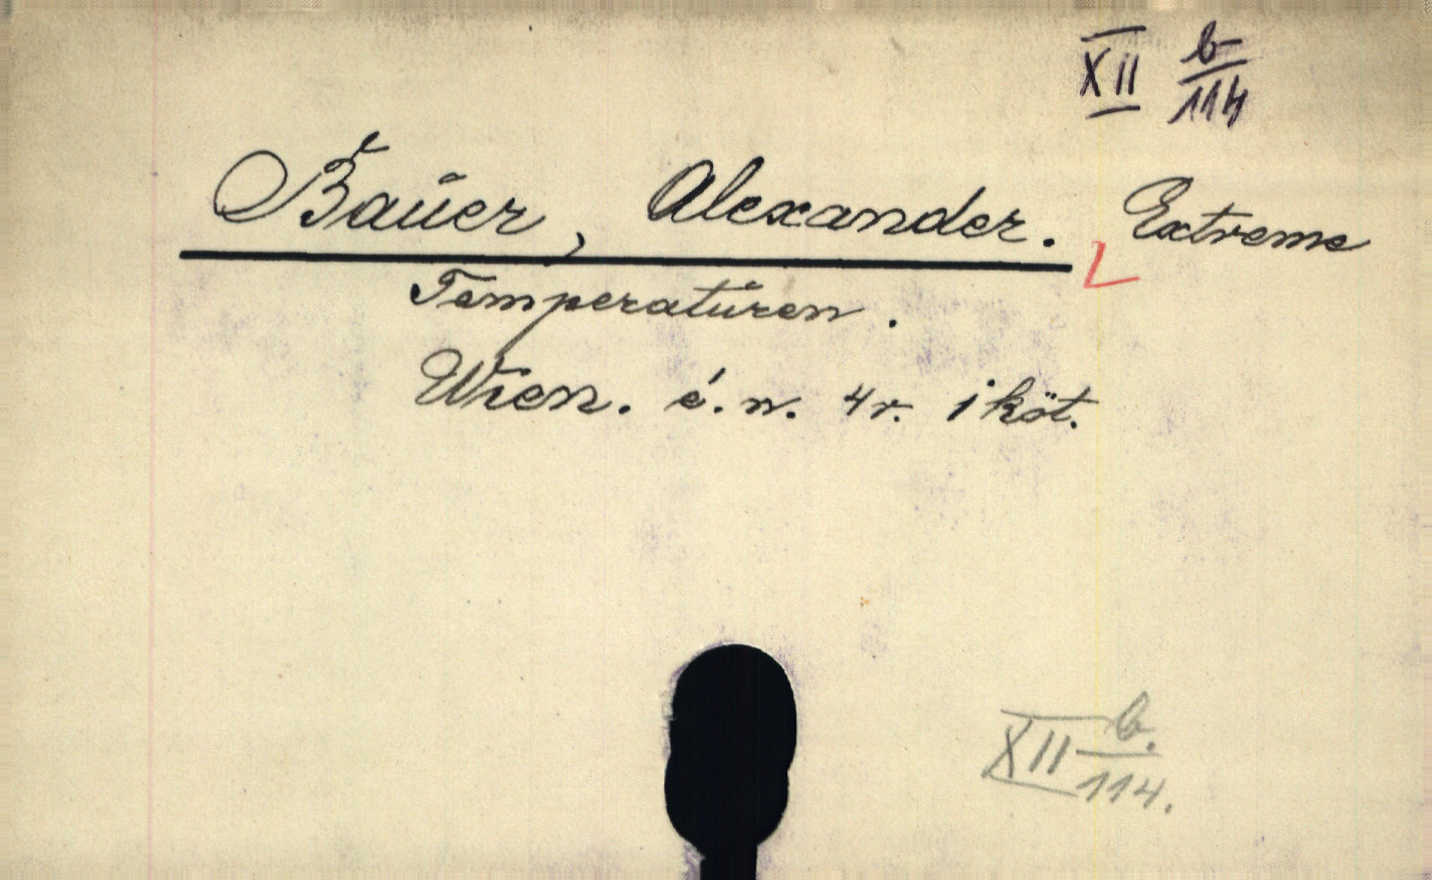 XII b/114
Bauer, Alexander. Extreme
Temperaturen.
Wien. é.n. 4r. 1 köt.
XII b./114.